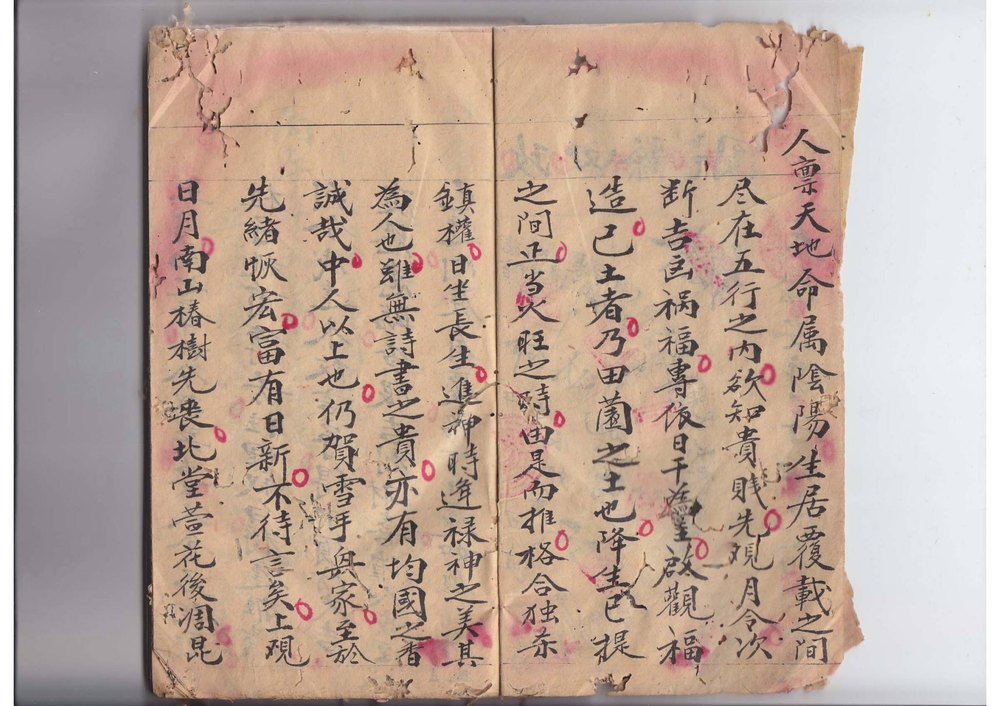 人禀天地命属陰陽生居覆載之间
尽在五行之内欲知貴贱先观月令次
断吉凶祸福專依日干為主啟觀福
造己土者乃田園之土也降生巳提
之间正当火旺之時由是而推格合独杀
鎮權日坐長生進神時逢禄神之美其
為人也雖無詩書之貴亦有均國之香
誠哉中人以上也仍賀雪手與家至於
先緒恢宏富有日新不待言矣上观
日月南山椿樹先丧北堂萱花後凋昆